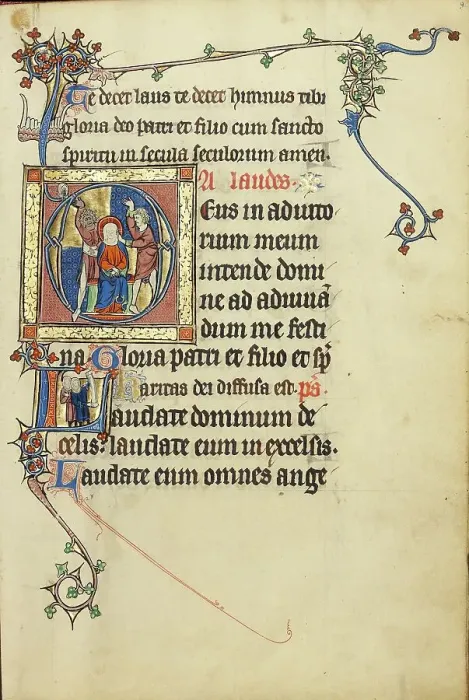 Te decet laus te decet himnus tibi
gloria deo patri et filio cum sancto
spiritu in secula seculorum amen.
A laudes.
Deus in adiuto
rium meum
intende domi
ne ad adiuuā
dum me festi
na. Gloria patri et filio et sp̄
Caritas dei diffusa est. ps̄
Laudate dominum de
celis: laudate eum in excelsis.
Laudate eum omnes ange